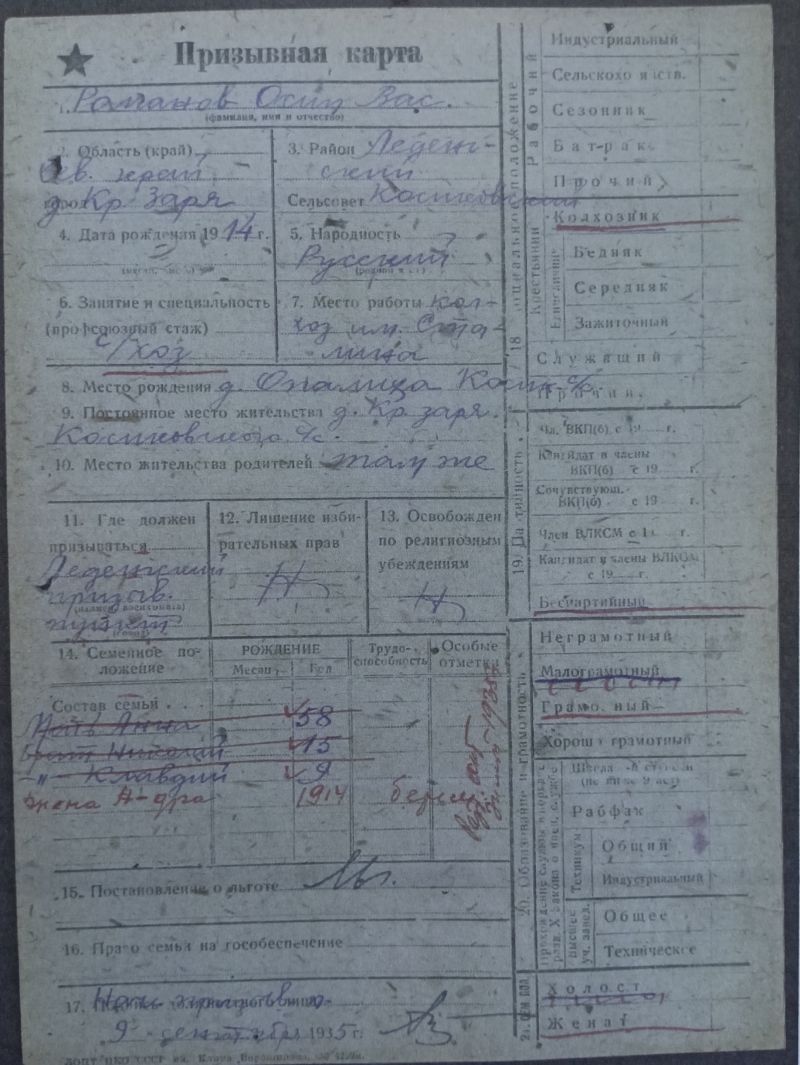 Призывная карта
1. Романов Осип Вас.
(фамилия, имя и отчество)
2. Область (край)
Сев. край
д. Кр. Заря
3. Район Леденг-
ский
Сельсовет
4. Дата рождения 1914 г.
5. Народность
Русский
6. Занятие и специальность
(профсоюзный стаж)
с/хоз
7. Место работы кол-
хоз им. Ста-
лина
8. Место рождения д. Опалиха
9. Постоянное место жительства д. Кр. заря.
с/с.
10. Место жительства родителей там же
11. Где должен
призываться
Леденгский
призыв.
пункт
12. Лишение изби-
рательных прав
Н
13. Освобожден
по религиозным
убеждениям
Н
14. Семейное по-
ложение
РОЖДЕНИЕ
Месяц
Год
Трудо-
способность
Особые
отметки
Состав семьи
Мать Анна 58
Брат Николай 15
-"- Клавдий 9
жена А-дра 1914 берем.
15. Постановление о льготе
16. Право семьи на гособеспечение
17.
9 сентября 1935 г.
18. Социальное положение
Рабочий
Индустриальный
Сельскохозяйств.
Сезонник
Батрак
Прочий
Крестьянин
Колхозник
Единоличник
Бедняк
Середняк
Зажиточный
Служащий
Прочий
19. Партийность
Чл. ВКП(б) с 19 г.
Кандидат в члены
ВКП(б) с 19 г.
Сочувствующ.
ВКП(б) с 19 г.
Член ВЛКСМ с 19 г.
Кандидат в члены ВЛКСМ
с 19 г.
Беспартийный
20. Образование и грамотность
Неграмотный
Малограмотный
Грамотный
Хорошо грамотный
(не ниже 9 лет)
Рабфак
Техникум
Общий
Индустриальный
Высшее
уч. завед.
Общее
Техническое
21. Сем. пол.
Холост
Женат